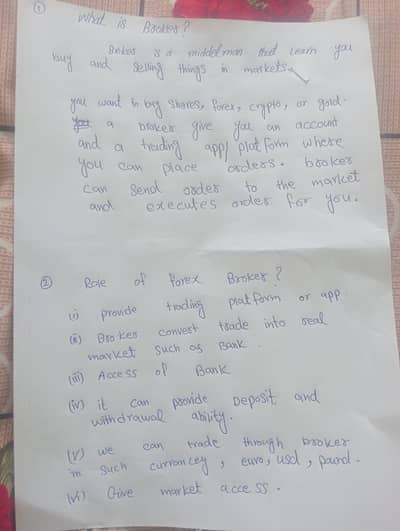 ① What is Broker?
Broker is a middelman that learn you
buy and selling things in markets.
you want to buy shares, forex, crypto, or gold.
a broker give you an account
and a trading app/platform where
you can place orders. broker
can send order to the market
and executes order for you.
② Role of Forex Broker?
(i) provide trading platform or app
(ii) Broker convert trade into real
market such as Bank.
(iii) Access of Bank
(iv) it can provide Deposit and
withdrawal ability.
(v) we can trade through broker
in such currancey, euro, usd, pound.
(vi) Give market access.